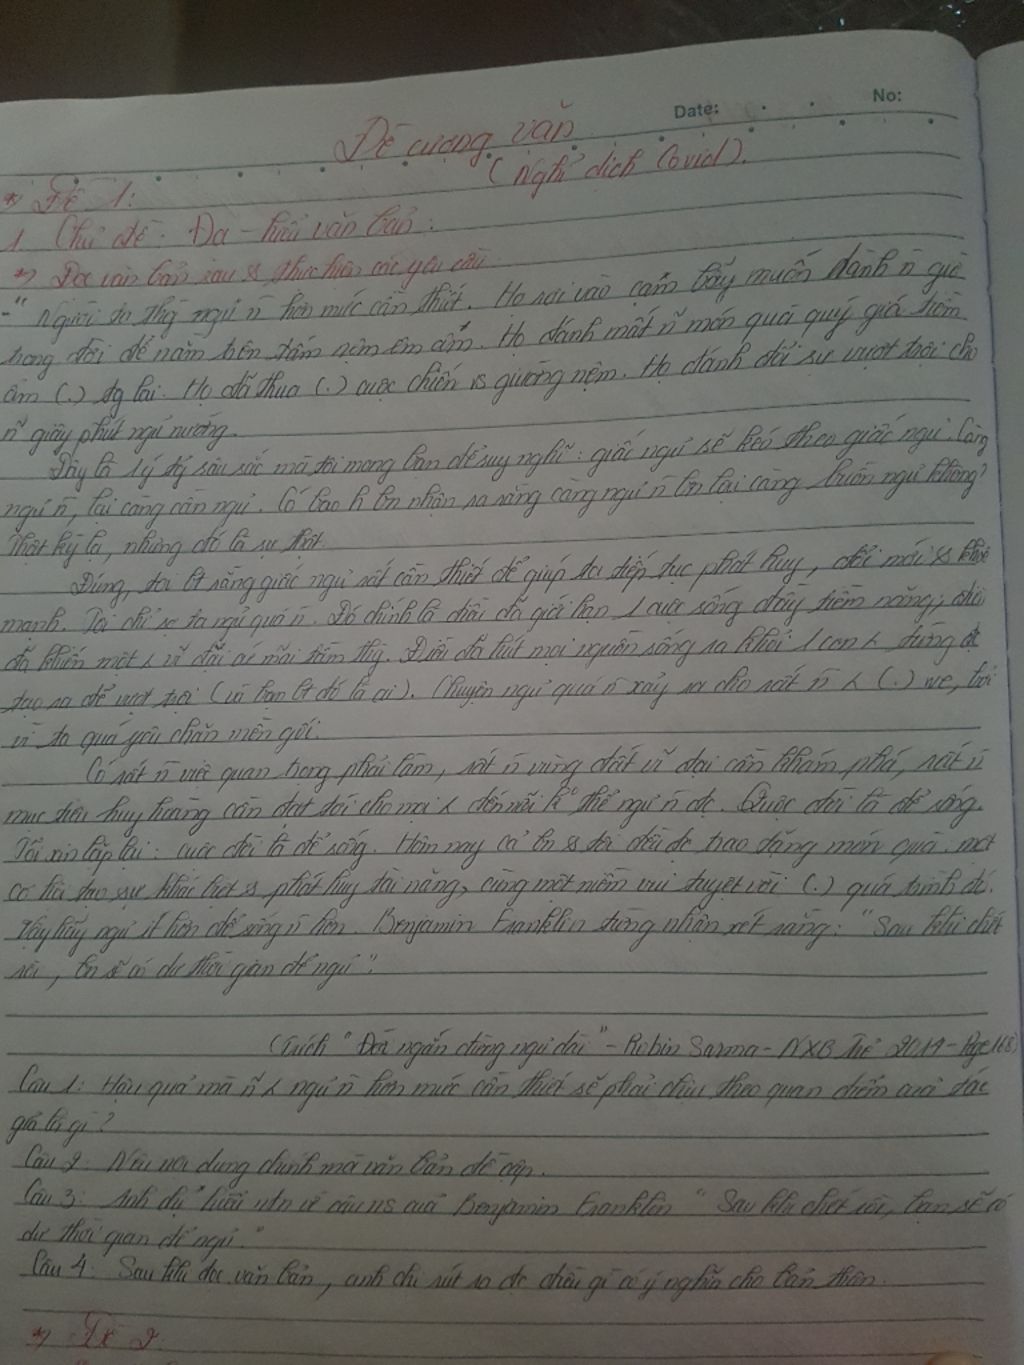 Date: No:
Đề cương văn
(Nghỉ dịch Covid).
* Đề 1:
1. Chủ đề: Đọc - hiểu văn bản:
* Đọc văn bản sau & thực hiện các yêu cầu
-" Người ta thg ngủ n̄ hơn mức cần thiết. Họ rơi vào cạm bẫy muốn dành n̄ giờ
trong đời để nằm trên tấm nệm êm ấm. Họ đánh mất n~ món quà quý giá tiềm
ẩn (.) tg lai. Họ đã thua (.) cuộc chiến vs giường nệm. Họ đánh đổi sự vượt trội cho
n~ giây phút ngủ nướng.
Đây là 1 ý tg sâu sắc mà tôi mong bạn để suy nghĩ: giấc ngủ sẽ kéo theo giấc ngủ. Càng
ngủ n̄, lại càng cần ngủ. Có bao h bn nhận ra rằng càng ngủ n̄ bn lại càng buồn ngủ không?
Thật kỳ lạ, nhưng đó là sự thật.
Đúng, tôi bt rằng giấc ngủ rất cần thiết để giúp ta tiếp tục phát huy, đổi mới & khỏe
mạnh. Tôi chỉ sợ ta ngủ quá n̄. Đó chính là điều đã giới hạn 1 cuộc sống đầy tiềm năng, điều
đã khiến một < vĩ đại cứ mãi tầm thg. Điều đã hút mọi nguồn sống ra khỏi 1 con < từng đc
tạo ra để vượt trội (và bạn bt đó là ai). Chuyện ngủ quá n̄ xảy ra cho rất n̄ < (.) we, bởi
vì ta quá yêu chăn mền gối.
Có rất n̄ việc quan trọng phải làm, rất n̄ vùng đất vĩ đại cần khám phá, rất n̄
mục tiêu huy hoàng cần đạt tới cho mọi < đến nỗi k° thể ngủ n̄ đc. Cuộc đời là để sống.
Tôi xin lặp lại: cuộc đời là để sống. Hôm nay cả bn & tôi đều đc trao tặng món quà: một
cơ hội tạo sự khác biệt & phát huy tài năng, cùng một niềm vui tuyệt vời (.) quá trình đó.
Vậy hãy ngủ ít hơn để sống n̄ hơn. Benjamin Franklin từng nhận xét rằng: "Sau khi chết
rồi, bn sẽ có dư thời gian để ngủ".
(Trích "Đời ngắn đừng ngủ dài" - Robin Sarma - NXB Trẻ 2014 - Page 168)
Câu 1: Hậu quả mà n~ < ngủ n̄ hơn mức cần thiết sẽ phải chịu theo quan điểm của tác
giả là gì?
Câu 2: Nêu nội dung chính mà văn bản đề cập.
Câu 3: Anh chị hiểu ntn về câu ns của Benjamin Franklin "Sau khi chết rồi, bạn sẽ có
dư thời gian để ngủ."
Câu 4: Sau khi đọc văn bản, anh chị rút ra đc điều gì có ý nghĩa cho bản thân.
* Đề 2: